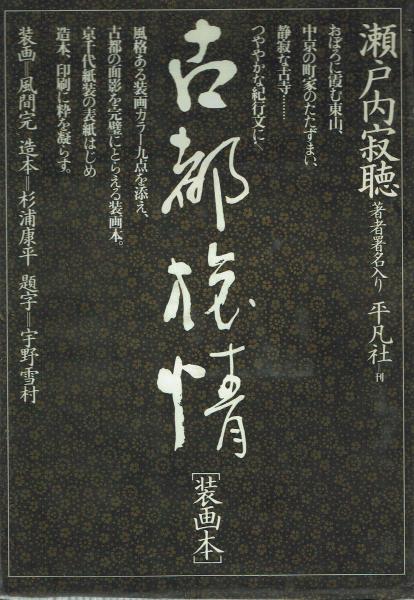 瀬戸内寂聴 著者署名入り 平凡社=刊
おぼろに霞む東山、
中京の町家のたたずまい、
静寂な古寺……
つややかな紀行文に、
古都旅情
[装画本]
風格ある装画カラー九点を添え、
古都の面影を完璧にとらえる装画本。
京千代紙装の表紙はじめ
造本、印刷に粋を凝らす。
装画=風間完 造本=杉浦康平 題字=宇野雪村